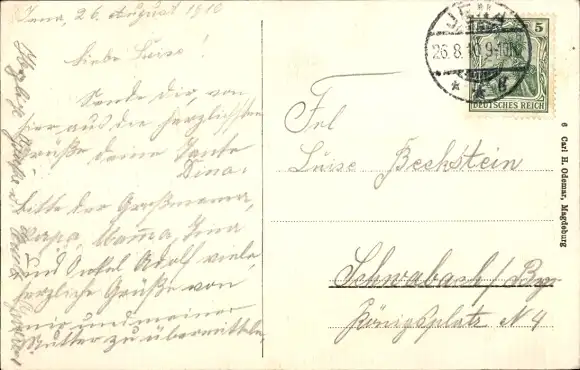 Jena, 26 August 1910
Liebe Luise!
Sende dir, von
hier aus die herzlichsten
Grüße deine Tante
Dina.
bitte der Großmama,
Papa, Mama, Tina
und Onkel Adolf viele,
herzliche Grüße von
mir und meiner
Mutter zu übermitteln,
JENA
26.8.10 9-10
DEUTSCHES REICH
5
Frl
Luise Bechstein
Schwabach/Bay.
Königsplatz N 4
6 Carl H. Odemar, Magdeburg